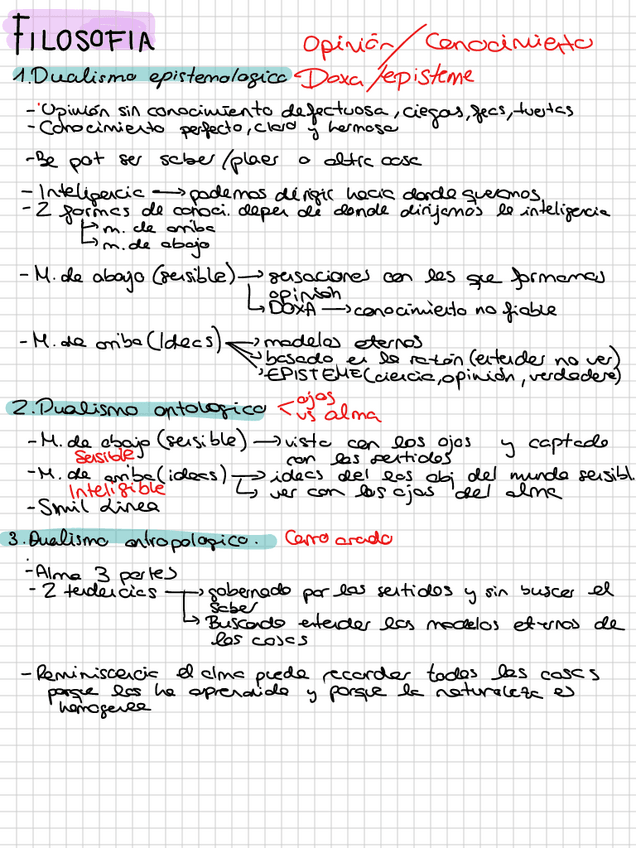 FILOSOFIA
Opinión / Conocimiento
1. Dualismo epistemologico Doxa / episteme
- Opinión sin conocimiento defectuosa, ciegas, feas, tuertas
- Conocimiento perfecto, claro y hermoso
- Be pot ser saber / plaer o altra cosa
- Inteligencia → podemos dirigir hacia donde queramos
- 2 formas de conoci. depen de donde dirijamos la inteligencia
↳ m. de arriba
↳ m. de abajo
- M. de abajo (sensible) → sensaciones con las que formamos
opinión
↳ DOXA → conocimiento no fiable
- M. de arriba (Ideas) → modelos eternos
→ basado en la razón (entender no ver)
→ EPISTEME (ciencia, opinión, verdadera)
2. Dualismo ontologico < ojos
vs alma
- M. de abajo (sensible) → vista con los ojos y captado
Sensible con los sentidos
- M. de arriba (ideas) → ideas del los obj del mundo sensibl
Inteligible ↳ ver con los ojos del alma
- Smil Linea
3. Dualismo antropologico. Carro arado
- Alma 3 partes
- 2 tendencias → gobernado por los sentidos y sin buscar el
saber
↳ Buscando entender los modelos eternos de
las cosas
- Reminiscencia el alma puede recordar todas las cosas
porque las ha aprendido y porque la naturaleza es
homogenea